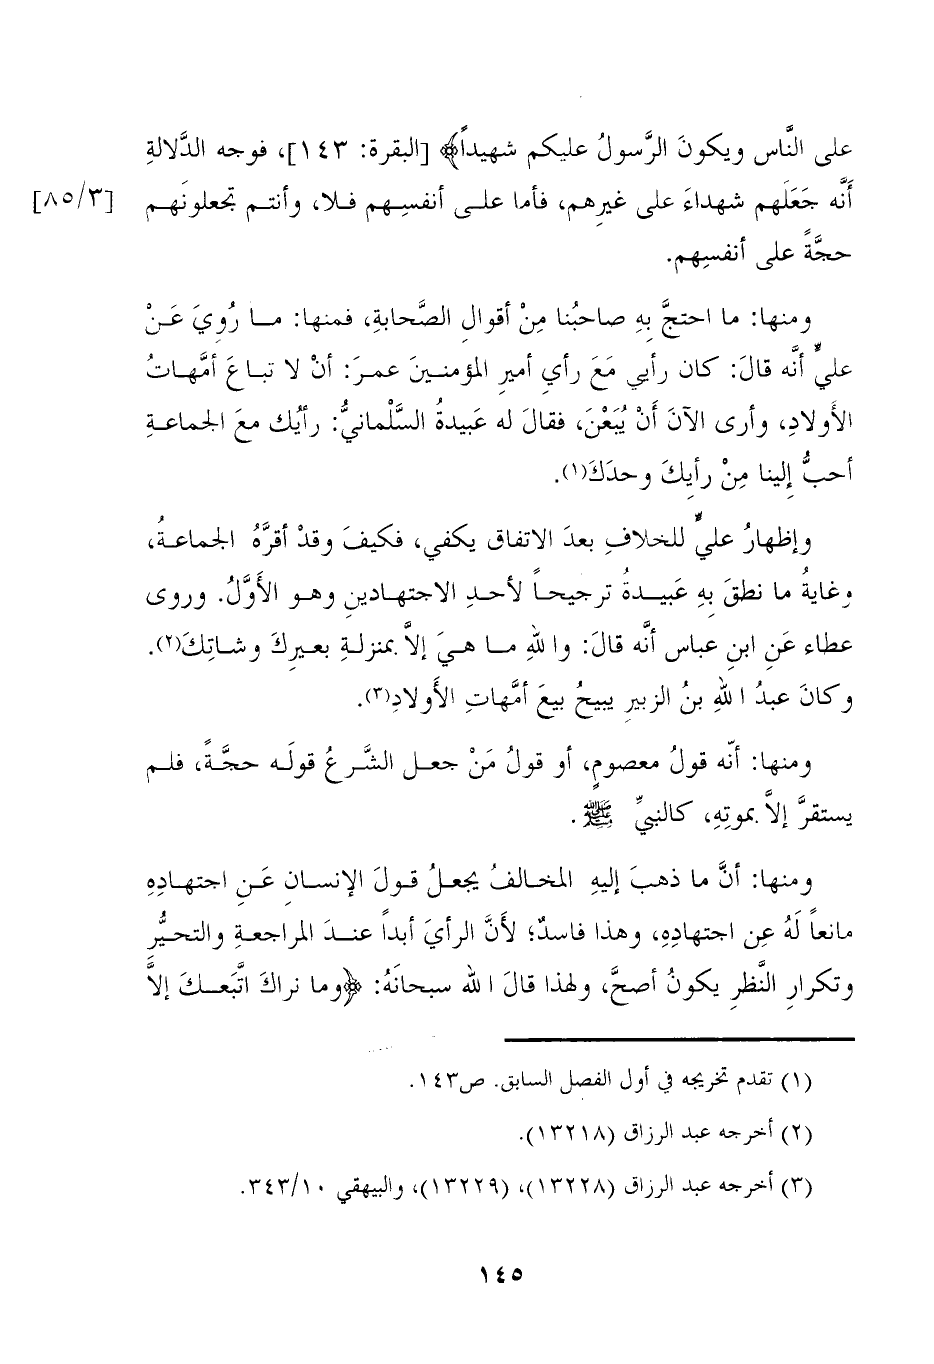 على النَّاس ويكونَ الرَّسولُ عليكم شهيداً﴾ [البقرة: ١٤٣]، فوجه الدَّلالةِ
أنَّه جَعَلَهم شهداءَ على غيرِهم، فأما علـى أنفسِـهم فـلا، وأنتـم تجعلونَهـم [٨٥/٣]
حجَّةً على أنفسِهم.
ومنها: ما احتجَّ بهِ صاحبُنا مِنْ أقوالِ الصَّحابةِ، فمنها: مـا رُويَ عَـنْ
عليٍّ أنَّه قالَ: كان رأيي مَعَ رأي أميرِ المؤمنـينَ عمـرَ: أنْ لا تبـاعَ أمَّهـاتُ
الأولادِ، وأرى الآنَ أَنْ يُبَعْنَ، فقالَ له عَبيدةُ السَّلْمانيُّ: رأيُك معَ الجماعـةِ
أحبُّ إلينا مِنْ رأيِكَ وحدَكَ(١).
وإظهارُ عليٍّ للخلافِ بعدَ الاتفاق يكفي، فكيفَ وقدْ أقرَّهُ الجماعـةُ،
وغايةُ ما نطقَ بِهِ عَبيـدةُ ترجيحـاً لأحـدِ الاجتهـادينِ وهـو الأوَّلُ. وروى
عطاء عَنِ ابنِ عباس أنَّه قالَ: واللهِ مـا هـيَ إلاَّ بمنزلـةِ بعيـرِكَ وشـاتِكَ(٢).
وكانَ عبدُ اللهِ بنُ الزبيرِ يبيحُ بيعَ أمَّهاتِ الأولادِ(٣).
ومنها: أنّه قولُ معصومٍ، أو قولُ مَنْ جعـل الشَّـرعُ قولَـه حجَّـةً، فلـم
يستقرَّ إلاَّ بموتِهِ، كالنبيِّ ﷺ.
ومنها: أنَّ ما ذهبَ إليهِ المخـالفُ يجعـلُ قـولَ الإنسـانِ عَـنِ اجتهـادِهِ
مانعاً لَهُ عِن اجتهادِهِ، وهذا فاسدٌ؛ لأنَّ الرأيَ أبداً عنـدَ المراجعـةِ والتحيُّـرِ
وتكرارِ النَّظرِ يكونُ أصحَّ، ولهذا قالَ الله سبحانَهُ: ﴿وما نراكَ اتَّبَعـكَ إلاَّ
(١) تقدم تخريجه في أول الفصل السابق. ص١٤٣.
(٢) أخرجه عبد الرزاق (١٣٢١٨).
(٣) أخرجه عبد الرزاق (١٣٢٢٨)، (١٣٢٢٩)، والبيهقي ٣٤٣/١٠.
١٤٥